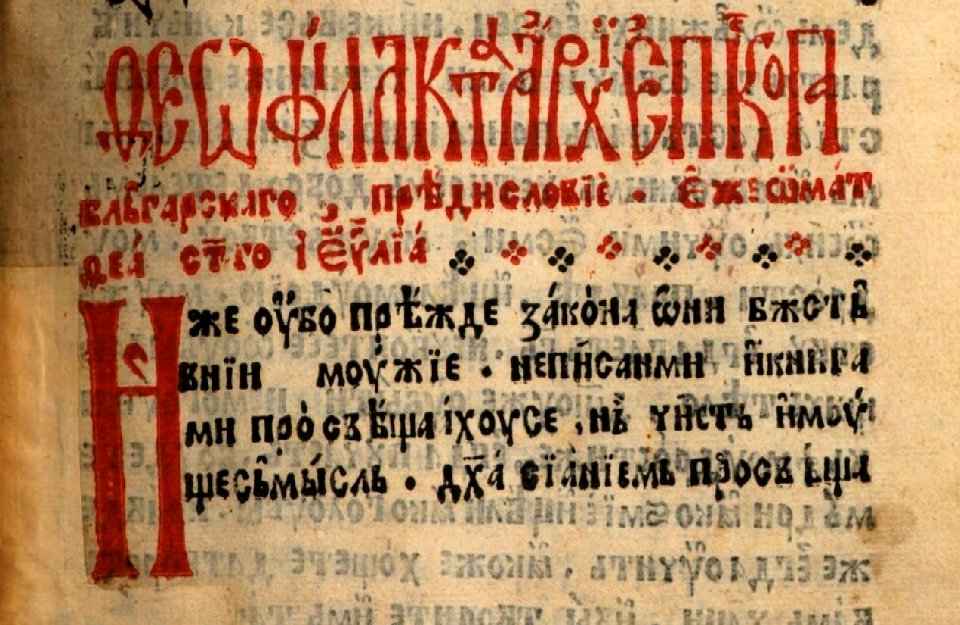 Ѳеѡфѵлакта архїепⷭ҇копа
бльгарскаго , прѣднсловїе · є҆же ѿ мат
ѳеа́ ст҃го і є҆ѵⷢ҇лїа́
Иже оу҆бо прѣ́жде зако́на ѡ҆ни бж҃ств҇
внїи моужїе · непи́санми и҆ книга
ми про́свѣ́щаі хоусе , нѫ҆ чисть и҆моу́
щесѣ́ мы́сль · дх҃а́ сїанїемь просвѣща